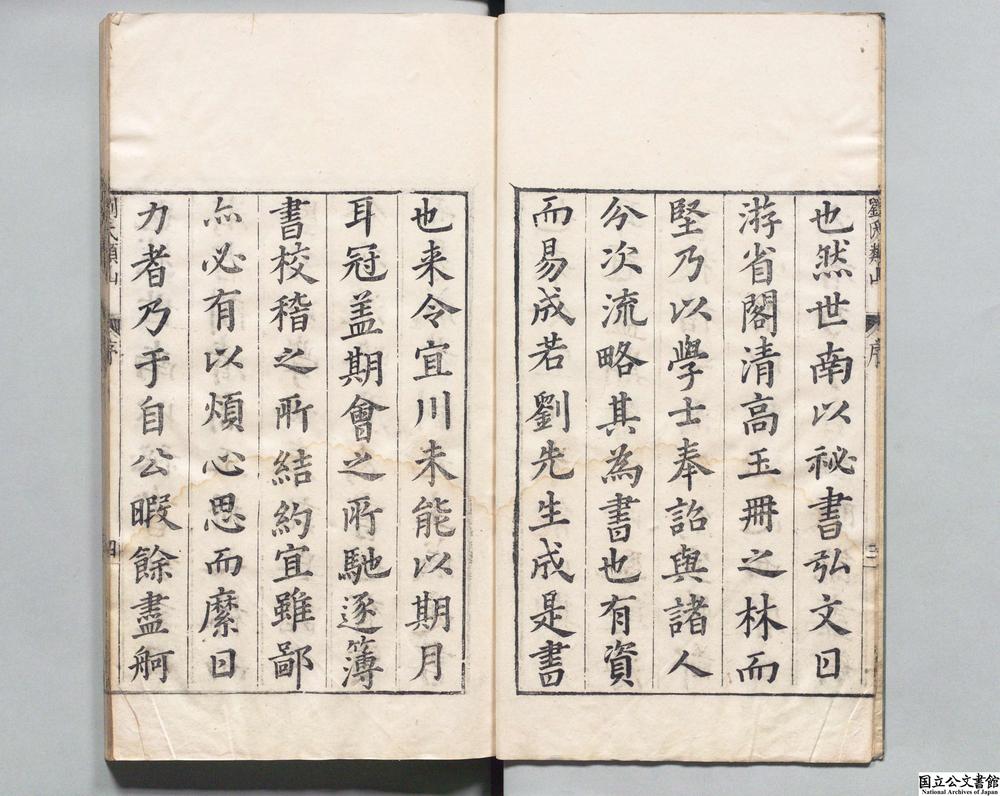 劉氏類山
序
三
也然世南以祕書弘文日
游省閣清高玉冊之林而
堅乃以學士奉詔與諸人
分次流略其為書也有資
而易成若劉先生成是書
也来令宜川未能以期月
耳冠盖期會之所馳逐簿
書校稽之所結約宜雖鄙
亦必有以煩心思而縻日
力者乃于自公暇餘盡舸
劉氏類山
序
四
国立公文書館
National Archives of Japan